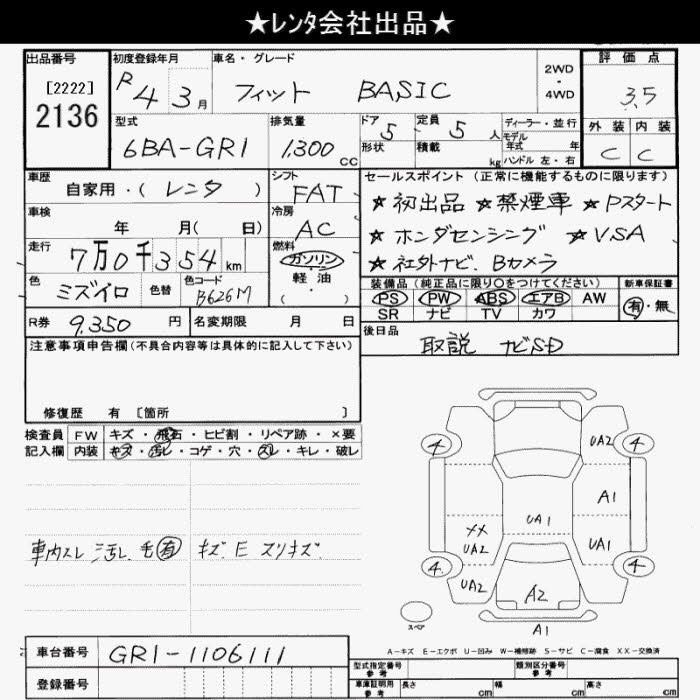 ★レンタ会社出品★
出品番号 初度登録年月 車名・グレード 評価点
[2222] 2136
R4 3月 フィット BASIC 2WD・4WD 3.5
型式 排気量 ドア 定員 ディーラー・並行 外装 内装
6BA-GR1 1,300cc 5 5人 モデル年式 年 C C
形状 積載 kg ハンドル 左・右
車歴 シフト セールスポイント (正常に機能するものに限ります)
自家用・(レンタ) FAT
★初出品 ★禁煙車 ★Pスタート
車検 冷房
年 月(日) AC
★ホンダセンシング ★VSA
走行 燃料
7万0千354km ガソリン・軽油・( )
★社外ナビ.Bカメラ
色 色替 色コード 装備品(純正品に限り○をつけてください) 新車保証書
ミズイロ B626M
PS PW ABS エアB AW 有・無
SR ナビ TV カワ
R券 9,350円 名変期限 月 日 後日品
取説 ナビSD
注意事項申告欄(不具合内容等は具体的に記入して下さい)
修復歴 有 [箇所 ]
検査員 FW キズ・飛石・ヒビ割・リペア跡・×要
記入欄 内装 キズ・汚レ・コゲ・穴・スレ・キレ・破レ
車内スレ 汚レ 毛有 キズ E スリキズ
4 UA2 4
A1
XX UA2 UA1 UA1
4 4
UA2 A2
スペア A1
A-キズ E-エクボ U-凹み W-補修跡 S-サビ C-腐食 XX-交換済
車台番号 GR1-1106111
登録番号
型式指定番号 参考 類別区分番号 参考
車庫証明用 参考 長さ cm 幅 cm 高さ cm